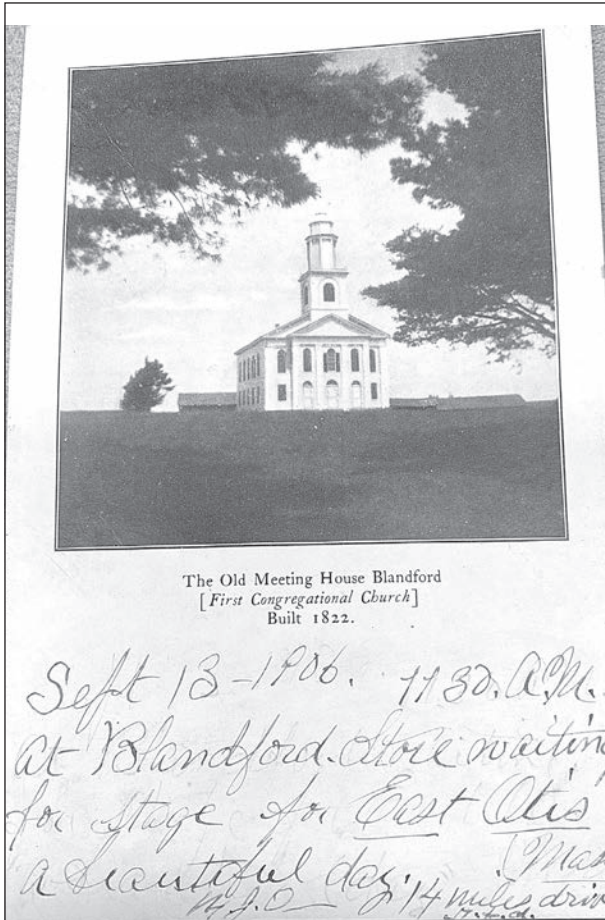 The Old Meeting House Blandford
[First Congregational Church]
Built 1822.
Sept 13-1906. 1130. A.M.
at Blandford. Store waiting
for stage for East Otis
a beautiful day. (Mass
14 miles drive